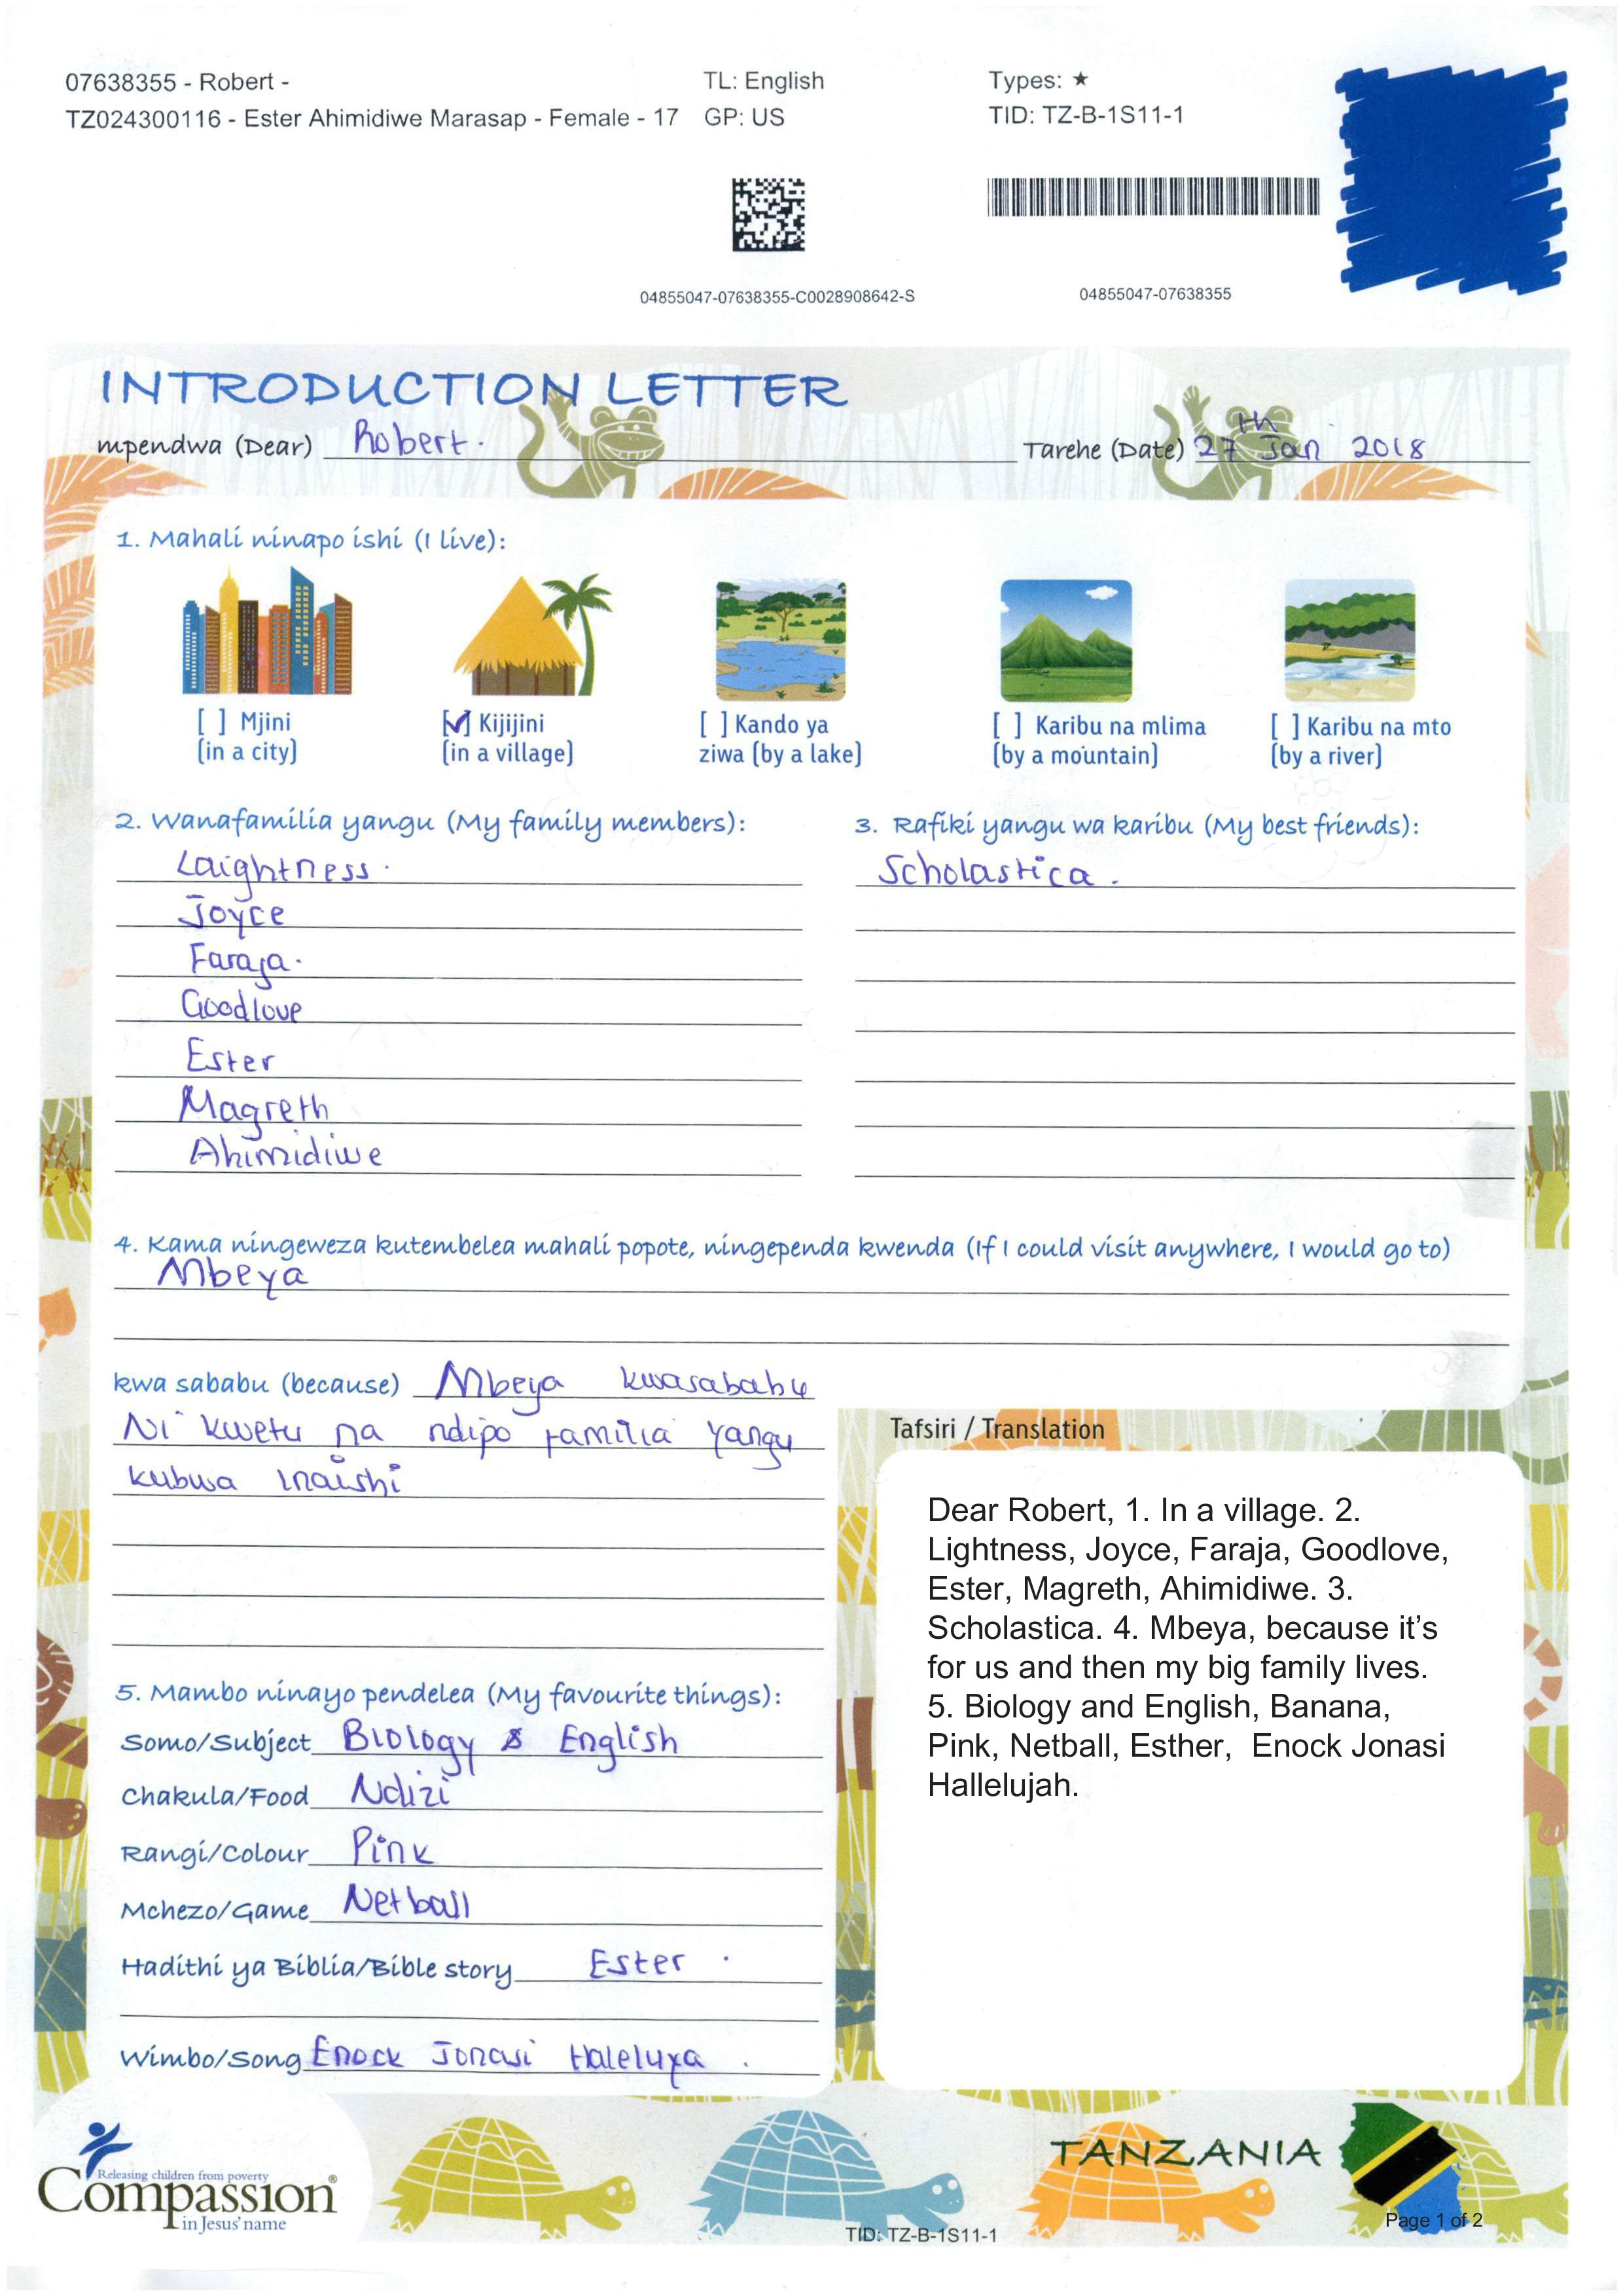 07638355 - Robert -
TL: English
Types: ★
TZ024300116 - Ester Ahimidiwe Marasap - Female - 17
GP: US
TID: TZ-B-1S11-1
04855047-07638355-C0028908642-S
04855047-07638355
INTRODUCTION LETTER
mpendwa (Dear) Robert.
Tarehe (Date) 27th Jan 2018
1. Mahali ninapo ishi (I live):
[ ] Mjini
(in a city)
[✓] Kijijini
(in a village)
[ ] Kando ya
ziwa (by a lake)
[ ] Karibu na mlima
(by a mountain)
[ ] Karibu na mto
(by a river)
2. Wanafamilia yangu (My family members):
Laightness.
Joyce
Faraja.
Goodlove
Ester
Magreth
Ahimidiwe
3. Rafiki yangu wa karibu (My best friends):
Scholastica.
4. Kama ningeweza kutembelea mahali popote, ningependa kwenda (If I could visit anywhere, I would go to)
Mbeya
kwa sababu (because) Mbeya kwasababu
Ni kwetu na ndipo familia yangu
kubwa inaishi
5. Mambo ninayo pendelea (My favourite things):
Somo/Subject Biology & English
Chakula/Food Ndizi
Rangi/Colour Pink
Mchezo/Game Netball
Hadithi ya Biblia/Bible story Ester .
Wimbo/Song Enock Jonasi Haleluya .
Tafsiri / Translation
Dear Robert, 1. In a village. 2.
Lightness, Joyce, Faraja, Goodlove,
Ester, Magreth, Ahimidiwe. 3.
Scholastica. 4. Mbeya, because it’s
for us and then my big family lives.
5. Biology and English, Banana,
Pink, Netball, Esther, Enock Jonasi
Hallelujah.
Releasing children from poverty
Compassion®
in Jesus' name
TANZANIA
Page 1 of 2
TID: TZ-B-1S11-1